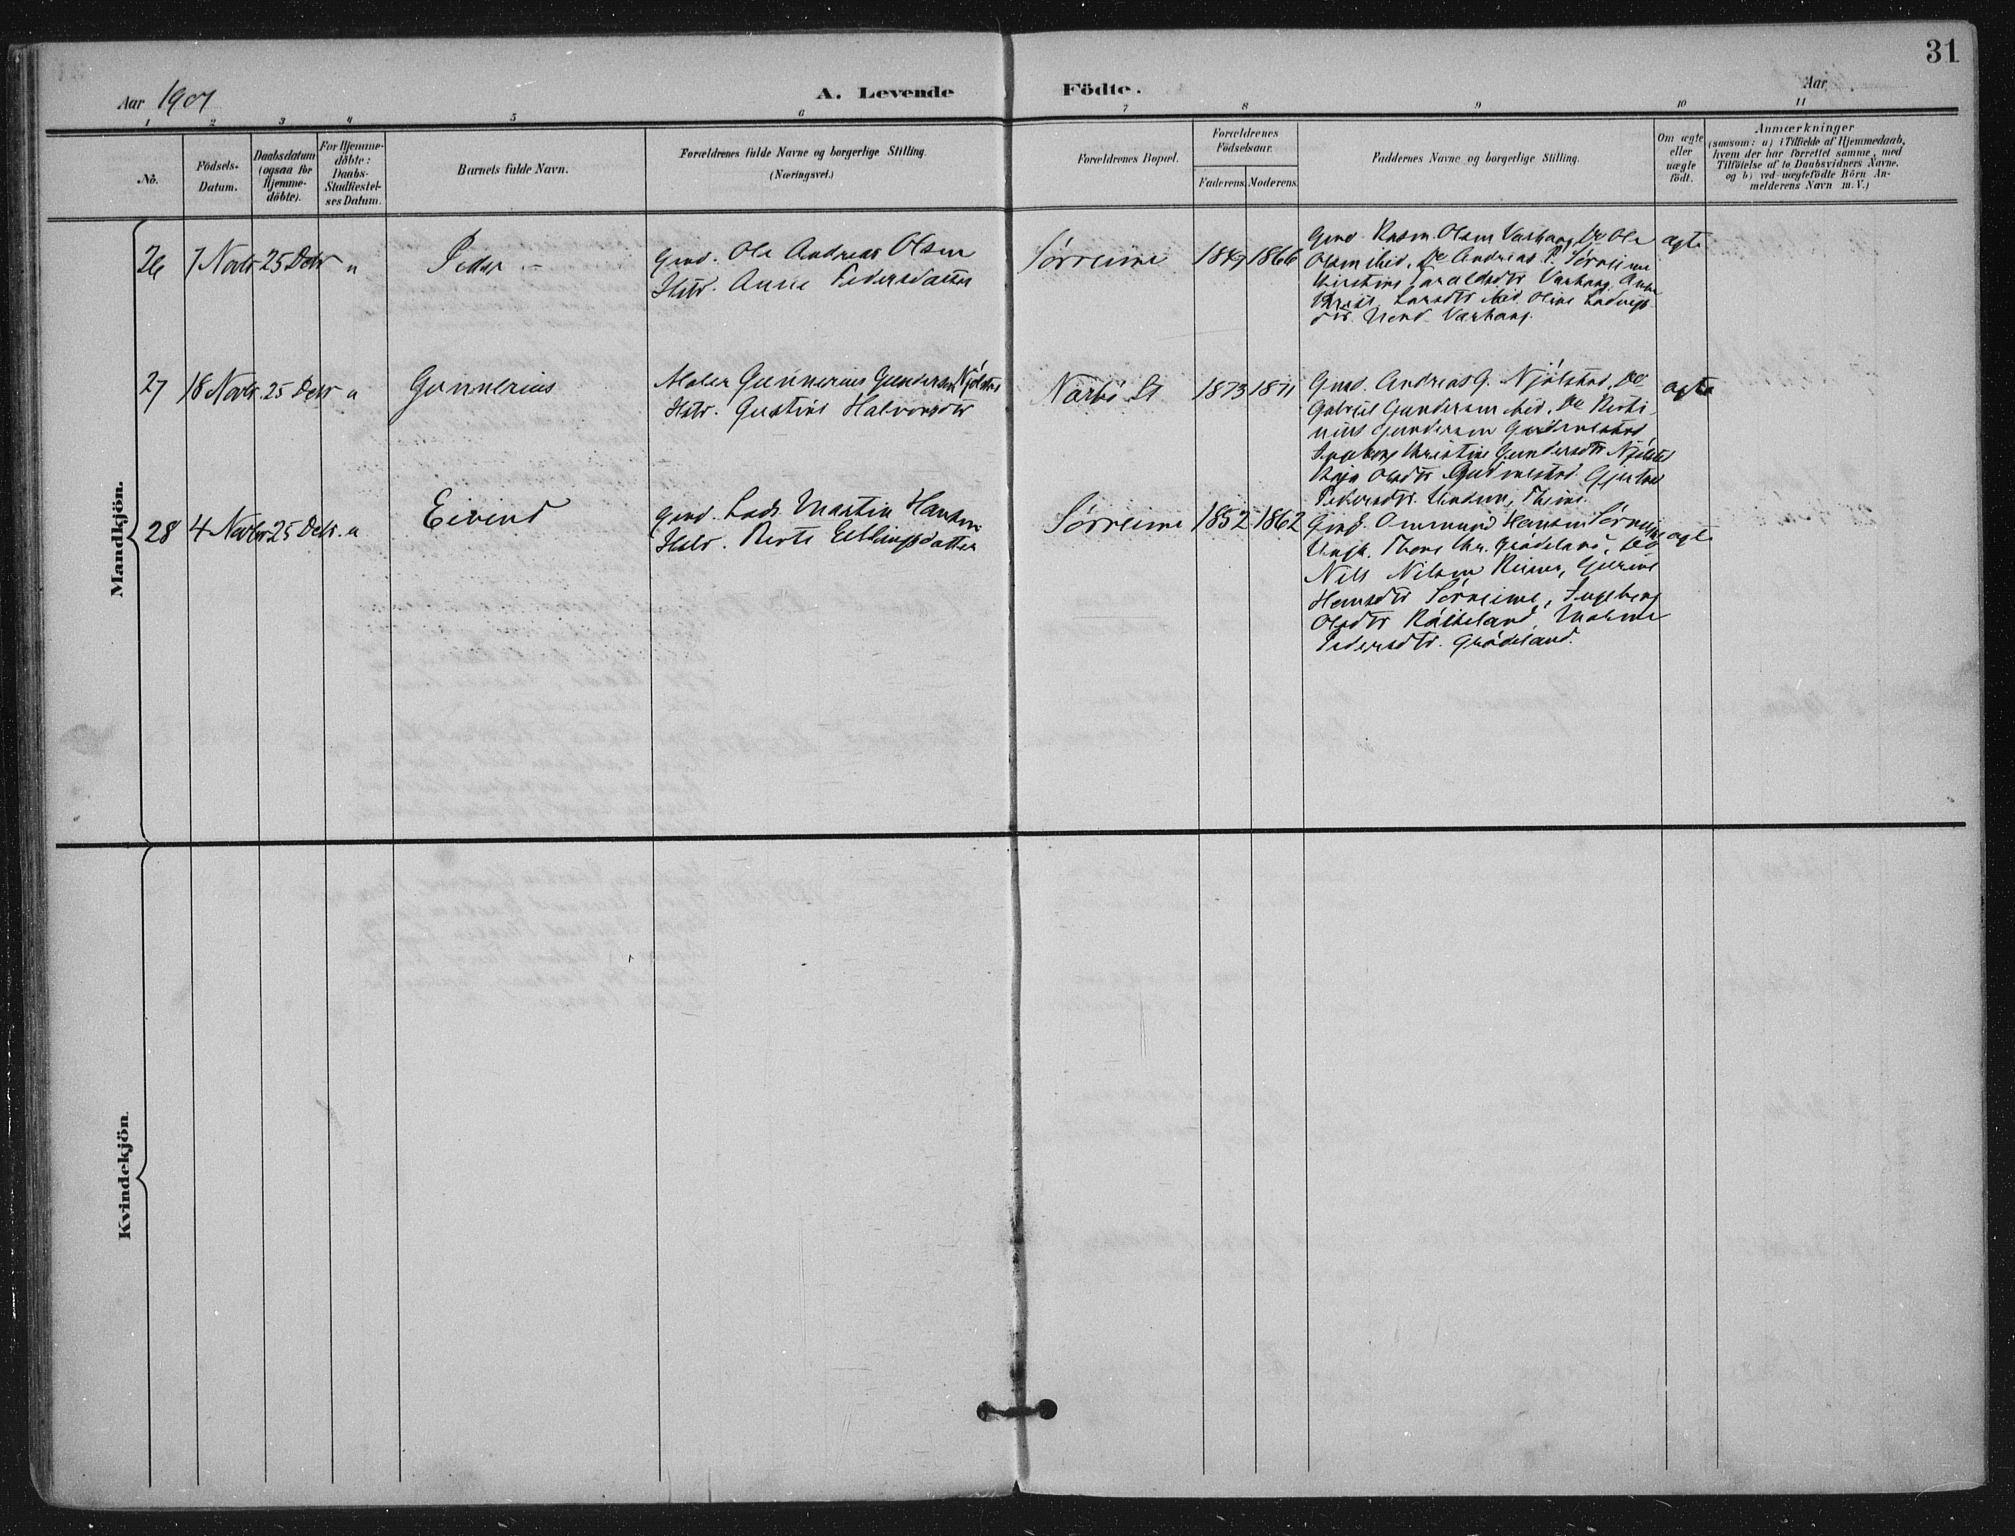 31
Aar 1901
A. Levende Födte.
Aar
1 2 3 4 5 6 7 8 9 10 11
No.
Födsels-
Datum.
Daabsdatum
(ogsaa for
Hjemme-
döbte).
For Hjemme-
döbte:
Daabs-
Stadfæstel-
ses Datum.
Barnets fulde Navn.
Forældrenes fulde Navne og borgerlige Stilling.
(Næringsvei.)
Forældrenes Bopæl.
Forældrenes
Födselsaar.
Faderens. Moderens.
Faddernes Navne og borgerlige Stilling.
Om ægte
eller
uægte
födt.
Anmærkninger
(saasom: a) i Tilfælde af Hjemmedaab,
hvem der har forrettet samme, med
Tilföielse af to Daabsvidners Navne.
og b) ved uægtefödte Börn An-
melderens Navn m. V.)
Mandkjön.
26 7 Novbr 25 Debr " Peder
Gmd. Ole Andreas Olsen
Hstr. Anne Pedersdatter
Sørreime 1849 1866
Gmd. Rasm. Olsen Varhaug, De Ole
Olsen ibid. De Andreas P. Sørreime
Kirstine Taraldsdtr Varhaug, Anne
Larsdtr ibid. Oline Ludvigs
dtr. Varhaug.
ægte
27 18 Novbr. 25 Debr " Gunnerius
Maler Gunnerius Gundersen Njølstad
Hstr. Gustine Halvorsdtr
Nærbø St 1873 1871
Gmd. Andreas G. Njølstad, De
Gabriel Gundersen ibid. De Berti-
nius Gundersen Gudmestad
Ingeborg Kristine Gundersdtr Njølstad
Olsdtr Gudmestad. Gjertine
Pedersdtr. Undem, Thime.
ægte
28 4 Novbr 25 Debr. " Eivind
Gmd. Lads Martin Hansen
Hstr. Berte Ellingsdatter
Sørreime 1852 1862
Gmd. Ommund Hansen Sørreime
Ungk. Thore Chr. Grødeland, Do
Nils Nilsen Reime, Gurine
Hansdtr Sørreime, Ingeborg
Olsdtr Rødeland, Malene
Pedersdtr. Grødeland.
ægte
Kvindekjön.